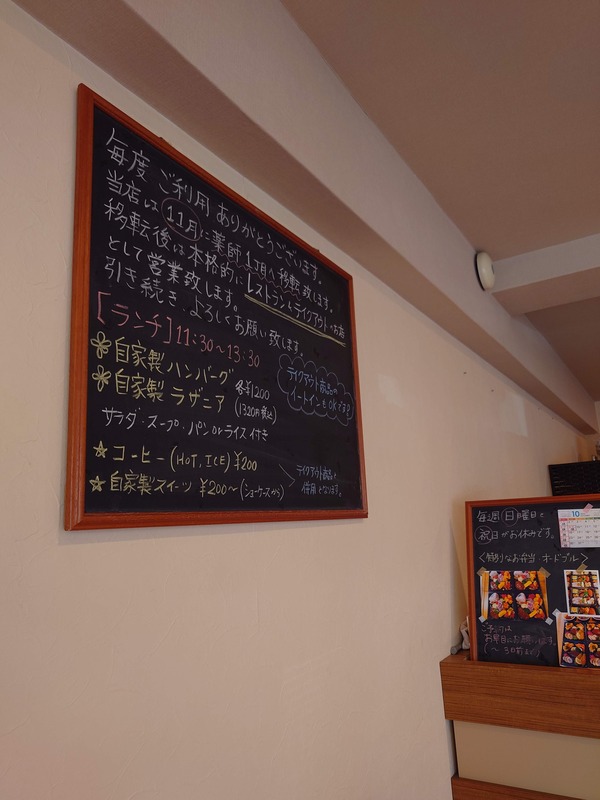 毎度 ご利用 ありがとうございます。
当店は 11月に薬師1丁目へ移転致します。
移転後は本格的に レストランとテイクアウトのお店
として営業致します。
引き続き よろしくお願い致します
[ランチ] 11:30～13:30
自家製 ハンバーグ
自家製 ラザニア
各¥1200
(1320円税込)
テイクアウト商品の
イートインもOKです!!
サラダ・スープ・パン or ライス 付き
☆ コーヒー (HOT, ICE) ¥200
☆ 自家製スイーツ ¥200～ (ショーケースから)
テイクアウト商品と
併用となります。
毎週 日曜日と
祝日がお休みです。
10
<特別なお弁当・オードブル>
ご予約は
お早目にお願いします。
(～3日前まで)